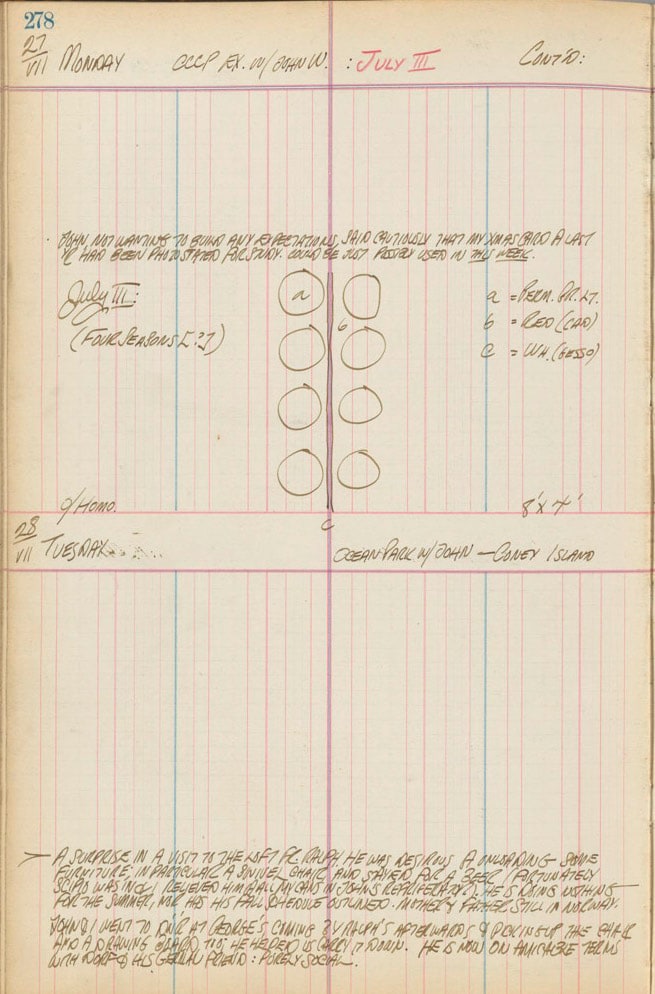 278
27
VII MONDAY CCCP EX. W/ JOHN W. : JULY III CONT'D:
JOHN, NOT WANTING TO BUILD ANY EXPECTATIONS, SAID CAUTIOUSLY THAT MY XMAS CARD LAST
YR HAD BEEN PHOTOSTATED FOR STUDY. COULD BE JUST POSSIBLY USED IN THIS WEEK.
July III:
(FOUR SEASONS [?])
a
b
c
a = PERM. GR. LT.
b = RED (CAD)
c = WH. (GESSO)
O/HOMO. 8' X 4'
28
VII TUESDAY OCEAN PARK W/ JOHN — CONEY ISLAND
A SURPRISE IN A VISIT TO THE LOFT FR. RALPH. HE WAS DESIROUS UNLOADING SOME
FURNITURE, IN PARTICULAR A SWIVEL CHAIR AND STAYED FOR A BEER (FORTUNATELY
WAS IN G / RELIEVED HIM ALL MY CANS IN JOHN'S REFRIGERATOR). HE IS DOING NOTHING
FOR THE SUMMER, NOR HAS HIS FALL SCHEDULE OUTLINED. MOTHER & FATHER STILL IN NORWAY.
JOHN & I WENT TO DNR AT GEORGE'S, COMING BY RALPH'S AFTERWARDS & PICKING UP THE CHAIR
AND A DRAWING BOARD TOO; HE HELPED US CARRY IT DOWN. HE IS NOW ON AMICABLE TERMS
WITH & HIS GERMAN FRIEND : PURELY SOCIAL.